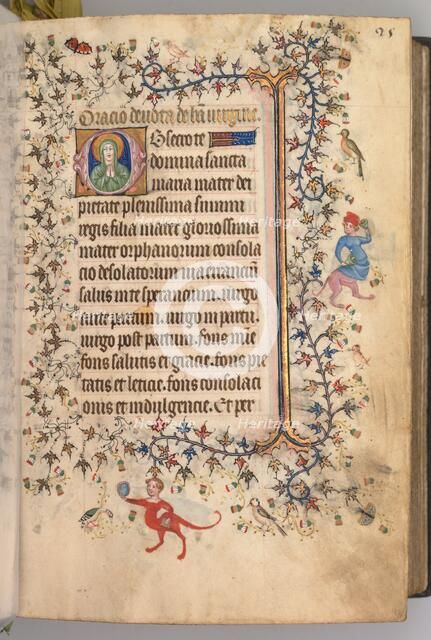 25
Oracio devota de bta virgine.
Obsecro te
domina sancta
maria mater dei
pietate plenissima summi
regis filia mater gloriosissima
mater orphanorum consola
cio desolatorum via erranciũ
salus in te sperancium. virgo
ante partum. virgo in partu.
virgo post partum. fons mie
fons salutis et gracie. fons pie
tatis et leticie. fons consolaci
onis et indulgencie. Et per
Heritage
Heritage
Heritage
Heritage
Heritage
Heritage